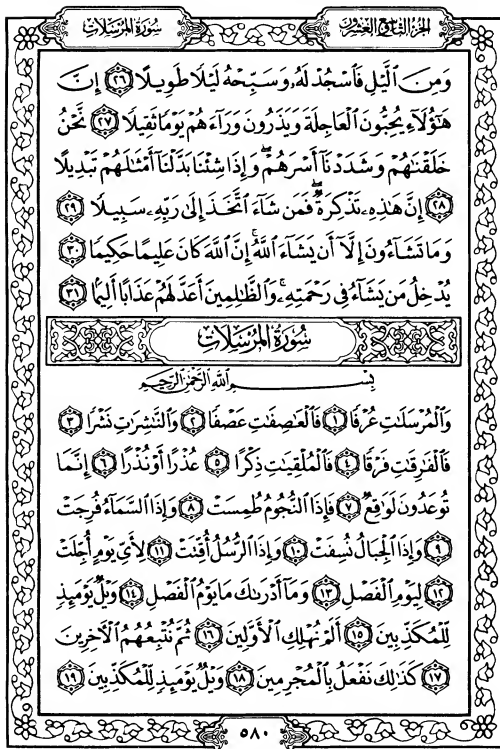 الجزء التاسع والعشرون
سورة المرسلات
وَمِنَ ٱلَّيۡلِ فَٱسۡجُدۡ لَهُۥ وَسَبِّحۡهُ لَيۡلٗا طَوِيلًا ٢٦ إِنَّ
هَٰٓؤُلَآءِ يُحِبُّونَ ٱلۡعَاجِلَةَ وَيَذَرُونَ وَرَآءَهُمۡ يَوۡمٗا ثَقِيلٗا ٢٧ نَّحۡنُ
خَلَقۡنَٰهُمۡ وَشَدَدۡنَآ أَسۡرَهُمۡۖ وَإِذَا شِئۡنَا بَدَّلۡنَآ أَمۡثَٰلَهُمۡ تَبۡدِيلًا
٢٨ إِنَّ هَٰذِهِۦ تَذۡكِرَةٞۖ فَمَن شَآءَ ٱتَّخَذَ إِلَىٰ رَبِّهِۦ سَبِيلٗا ٢٩
وَمَا تَشَآءُونَ إِلَّآ أَن يَشَآءَ ٱللَّهُۚ إِنَّ ٱللَّهَ كَانَ عَلِيمًا حَكِيمٗا ٣٠
يُدۡخِلُ مَن يَشَآءُ فِي رَحۡمَتِهِۦۚ وَٱلظَّٰلِمِينَ أَعَدَّ لَهُمۡ عَذَابًا أَلِيمَۢا ٣١
سُورَةُ المُرْسَلَاتِ
بِسۡمِ ٱللَّهِ ٱلرَّحۡمَٰنِ ٱلرَّحِيمِ
وَٱلۡمُرۡسَلَٰتِ عُرۡفٗا ١ فَٱلۡعَٰصِفَٰتِ عَصۡفٗا ٢ وَٱلنَّٰشِرَٰتِ نَشۡرٗا ٣
فَٱلۡفَٰرِقَٰتِ فَرۡقٗا ٤ فَٱلۡمُلۡقِيَٰتِ ذِكۡرًا ٥ عُذۡرًا أَوۡ نُذۡرًا ٦ إِنَّمَا
تُوعَدُونَ لَوَٰقِعٞ ٧ فَإِذَا ٱلنُّجُومُ طُمِسَتۡ ٨ وَإِذَا ٱلسَّمَآءُ فُرِجَتۡ
٩ وَإِذَا ٱلۡجِبَالُ نُسِفَتۡ ١٠ وَإِذَا ٱلرُّسُلُ أُقِّتَتۡ ١١ لِأَيِّ يَوۡمٍ أُجِّلَتۡ
١٢ لِيَوۡمِ ٱلۡفَصۡلِ ١٣ وَمَآ أَدۡرَىٰكَ مَا يَوۡمُ ٱلۡفَصۡلِ ١٤ وَيۡلٞ يَوۡمَئِذٖ
لِّلۡمُكَذِّبِينَ ١٥ أَلَمۡ نُهۡلِكِ ٱلۡأَوَّلِينَ ١٦ ثُمَّ نُتۡبِعُهُمُ ٱلۡأٓخِرِينَ
١٧ كَذَٰلِكَ نَفۡعَلُ بِٱلۡمُجۡرِمِينَ ١٨ وَيۡلٞ يَوۡمَئِذٖ لِّلۡمُكَذِّبِينَ ١٩
٥٨٠